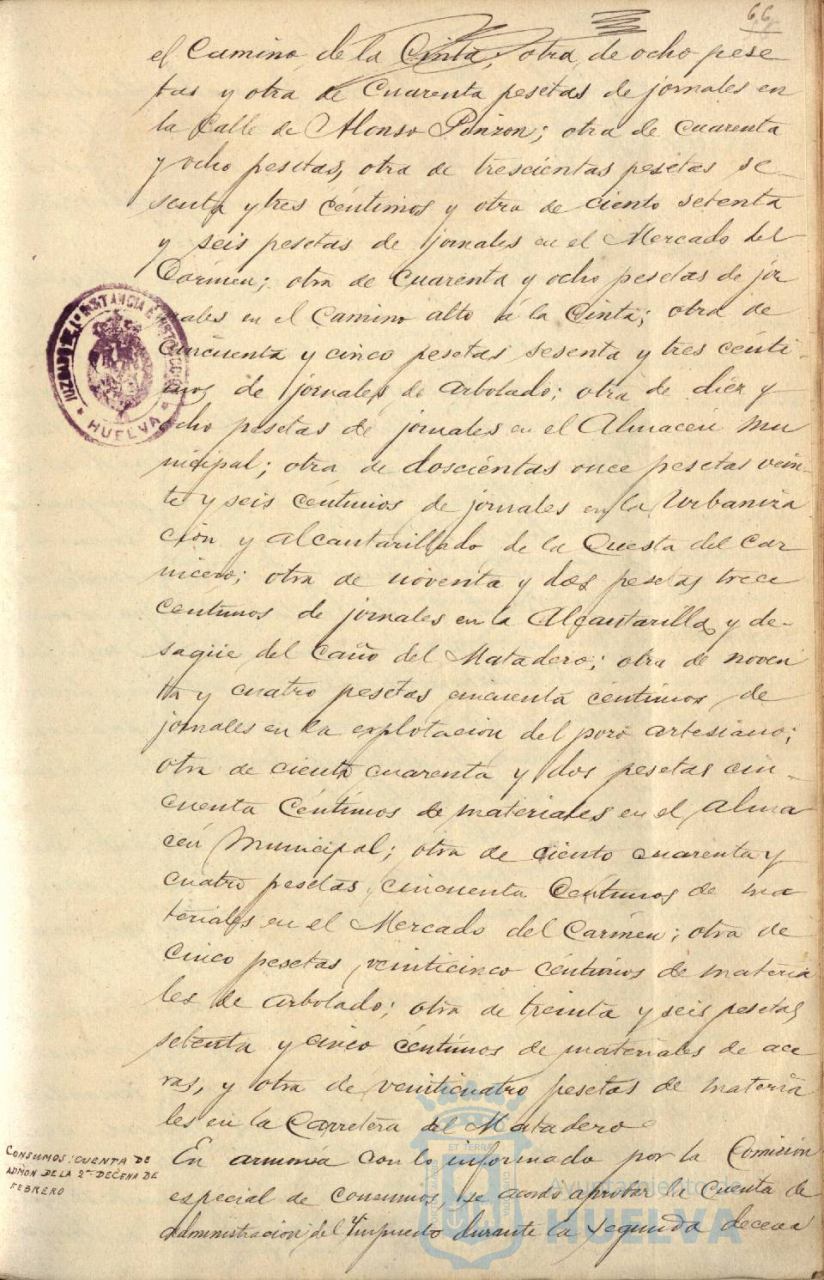 66
el Camino de la Cinta, otra de ocho pese
tas y otra de cuarenta pesetas de jornales en
la Calle de Alonso Pinzon; otra de cuarenta
y ocho pesetas, otra de trescientas pesetas se-
senta y tres céntimos y otra de ciento setenta
y seis pesetas de jornales en el Mercado del
Cármen; otra de cuarenta y ocho pesetas de jor
nales en el Camino alto á la Cinta; otra de
cincuenta y cinco pesetas sesenta y tres cénti-
mos de jornales de arbolado; otra de diez y
ocho pesetas de jornales en el Almacén Mu
nicipal; otra de doscientas once pesetas vein-
te y seis céntimos de jornales en la Urbaniza
ción y alcantarillado de la Questa del Car
nicero; otra de noventa y dos pesetas trece
centimos de jornales en la Alcantarilla y de-
sagüe del caño del Matadero; otra de noven
ta y cuatro pesetas cincuenta céntimos de
jornales en la explotacion del pozo artesiano;
otra de ciento cuarenta y dos pesetas cin-
cuenta céntimos de materiales en el Alma
cén Municipal; otra de ciento cuarenta y
cuatro pesetas, cincuenta céntimos de ma
teriales en el Mercado del Carmen; otra de
cinco pesetas, veinticinco céntimos de materia
les de arbolado; otra de treinta y seis pesetas
setenta y cinco céntimos de materiales de ace
ras, y otra de veinticuatro pesetas de materia
les en la Carretera del Matadero
En armonía con lo informado por la Comisión
especial de consumos, se acordó aprobar la cuenta de
administracion del impuesto durante la segunda decena
CONSUMOS: CUENTA DE
ADMON DE LA 2ª DECENA DE
FEBRERO
JUZGADO DE 1ª INSTANCIA E INSTRUCCION
HUELVA
Ayuntamiento de
HUELVA